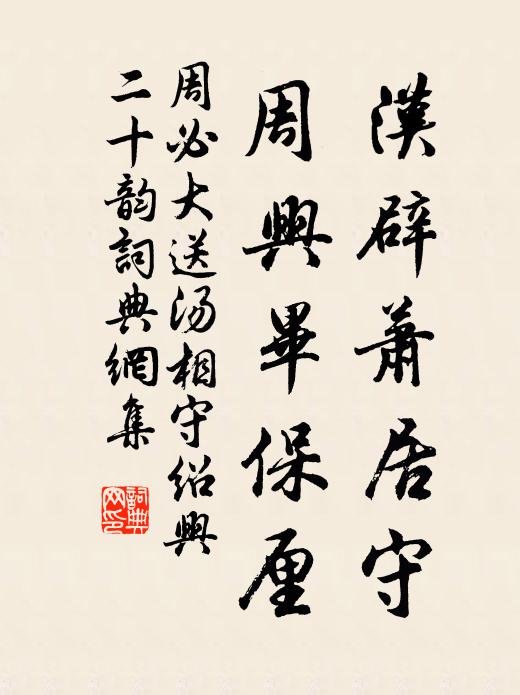 漢辟蕭居守
周興畢保厘
周必大送汤相守绍興
二十韵詞典網集
詞典網印